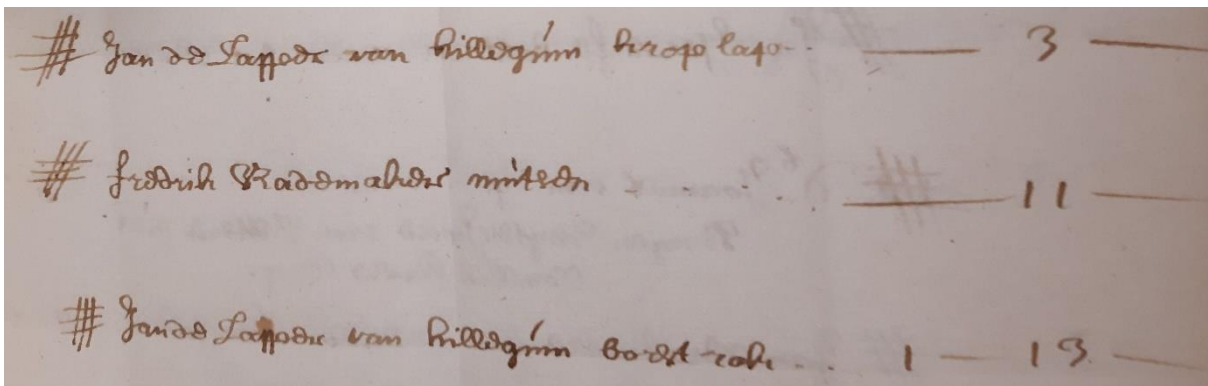 Jan de Lapper van hillegúm krop lap - . . — 3 —
fredrik Rademaker mútsen - . . . — 11 —
Jan de Lapper van hillegúm borst rok . . . 1 — 13 —